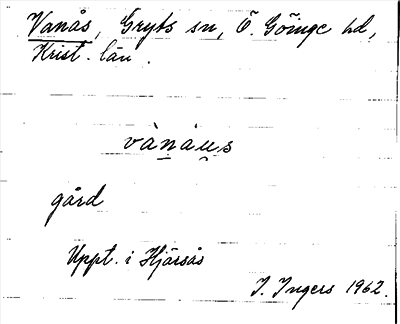 Vanås, Gryts sn, Ö. Göinge hd,
Krist. län.
vànàu̯s
gård
Uppt. i Hjärsås
I. Ingers 1962.